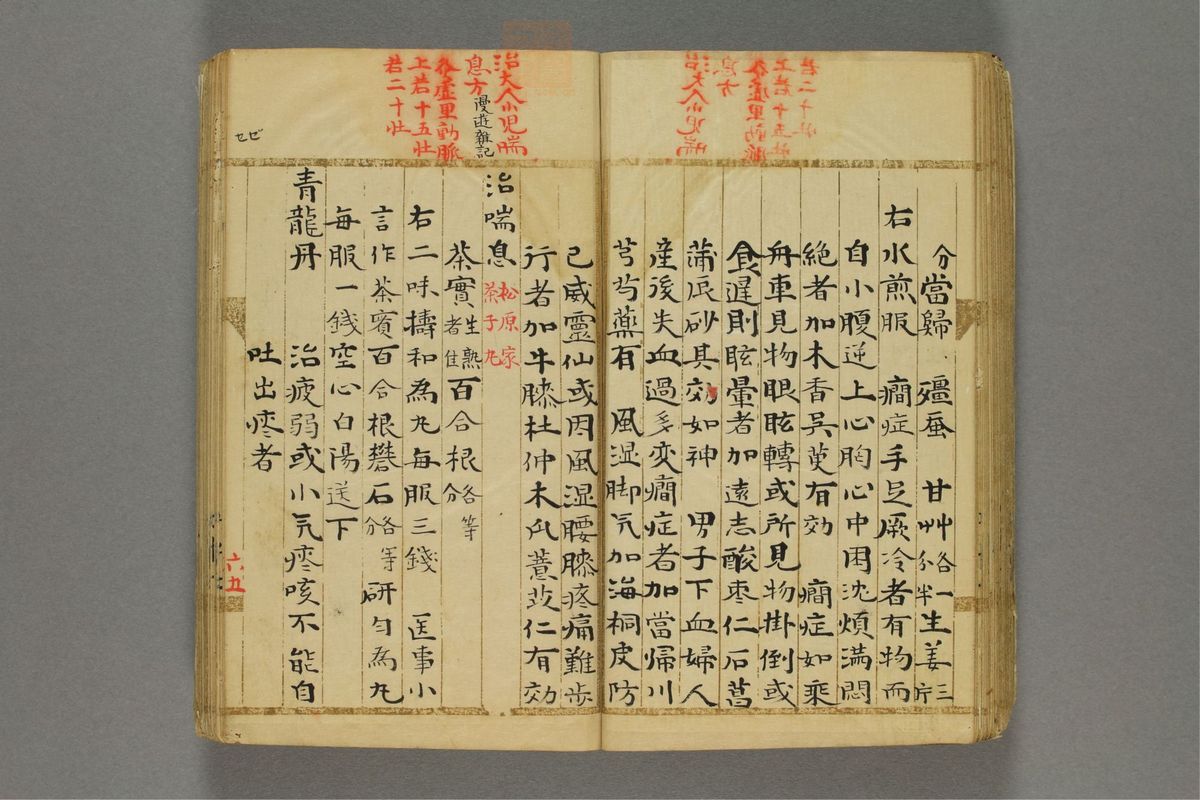 分當歸 殭蚕 甘艸各一分半生姜三片
右水煎服 癇症手足厥冷者有物而
自小腹逆上心胸心中困沈煩満悶
絶者加木香呉茰有効 癇症如乘
舟車見物眼眩轉或所見物掛倒或
食遅則眩暈者加遠志酸枣仁石菖
蒲辰砂其効如神 男子下血婦人
産後失血過多変癇症者加當帰川
芎芍藥有 風湿脚気加海桐皮防
已威靈仙或因風湿腰膝疼痛難歩
行者加牛膝杜仲木瓜薏苡仁有効
治大人小児喘
息方 漫遊雜記
谷虚里動脈
上若十五壮
若二十壮
治喘息 松原家茶子丸
茶實生熟者佳百合根各等分
右二味擣和為丸每服三錢 医事小
言作茶實百合根礬石各等分研匀為丸
每服一錢空心白陽送下
青龍丹 治疲弱或小気痰咳不能自
吐出痰者
六五